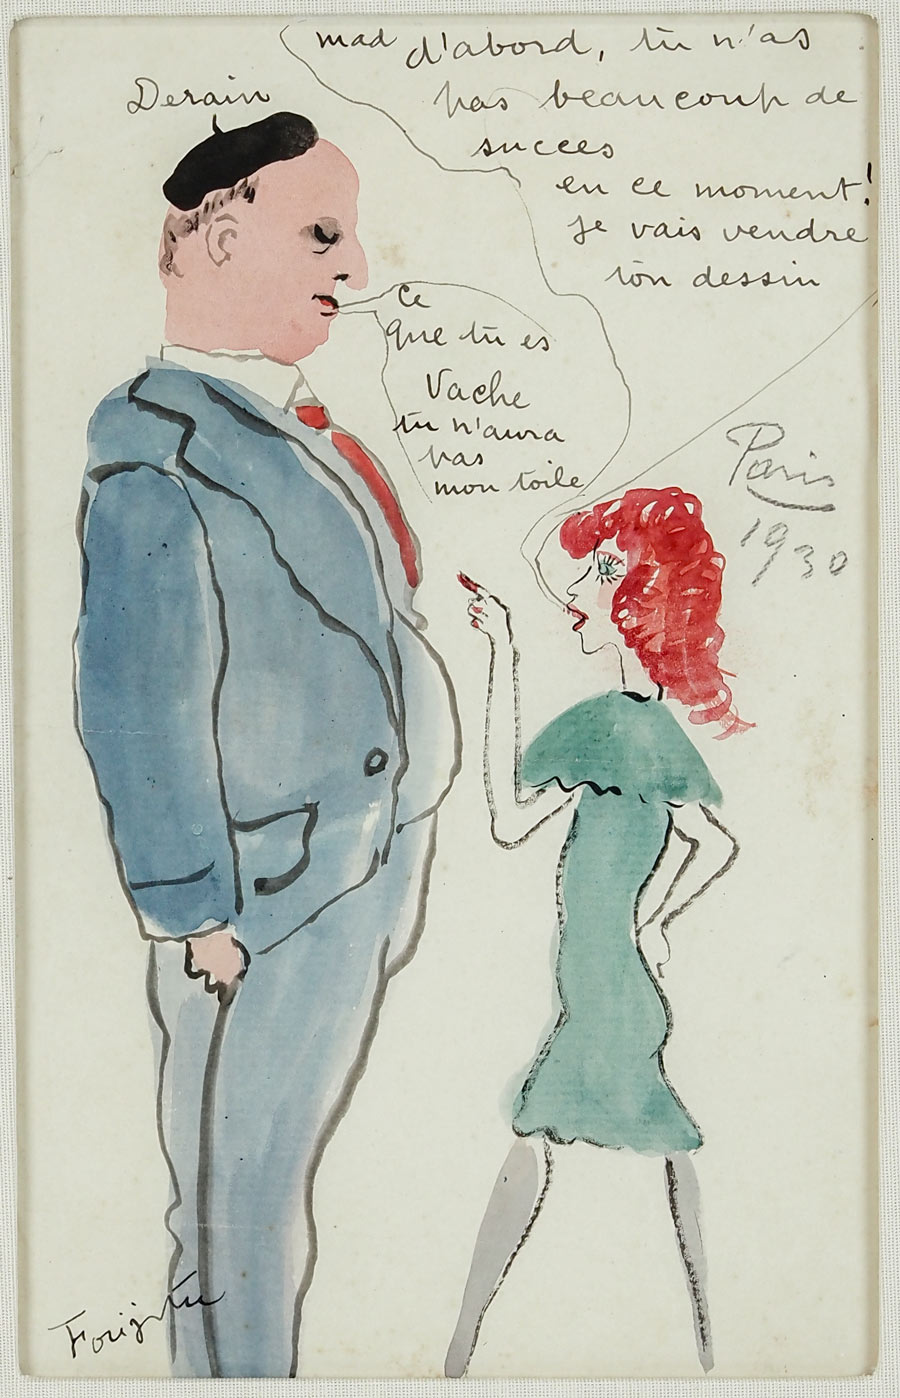 mad d'abord, tu n'as
pas beaucoup de
succes
en ce moment!
je vais vendre
ton dessin
Derain
Ce
que tu es
Vache
tu n'aura
pas
mon toile
Paris
1930